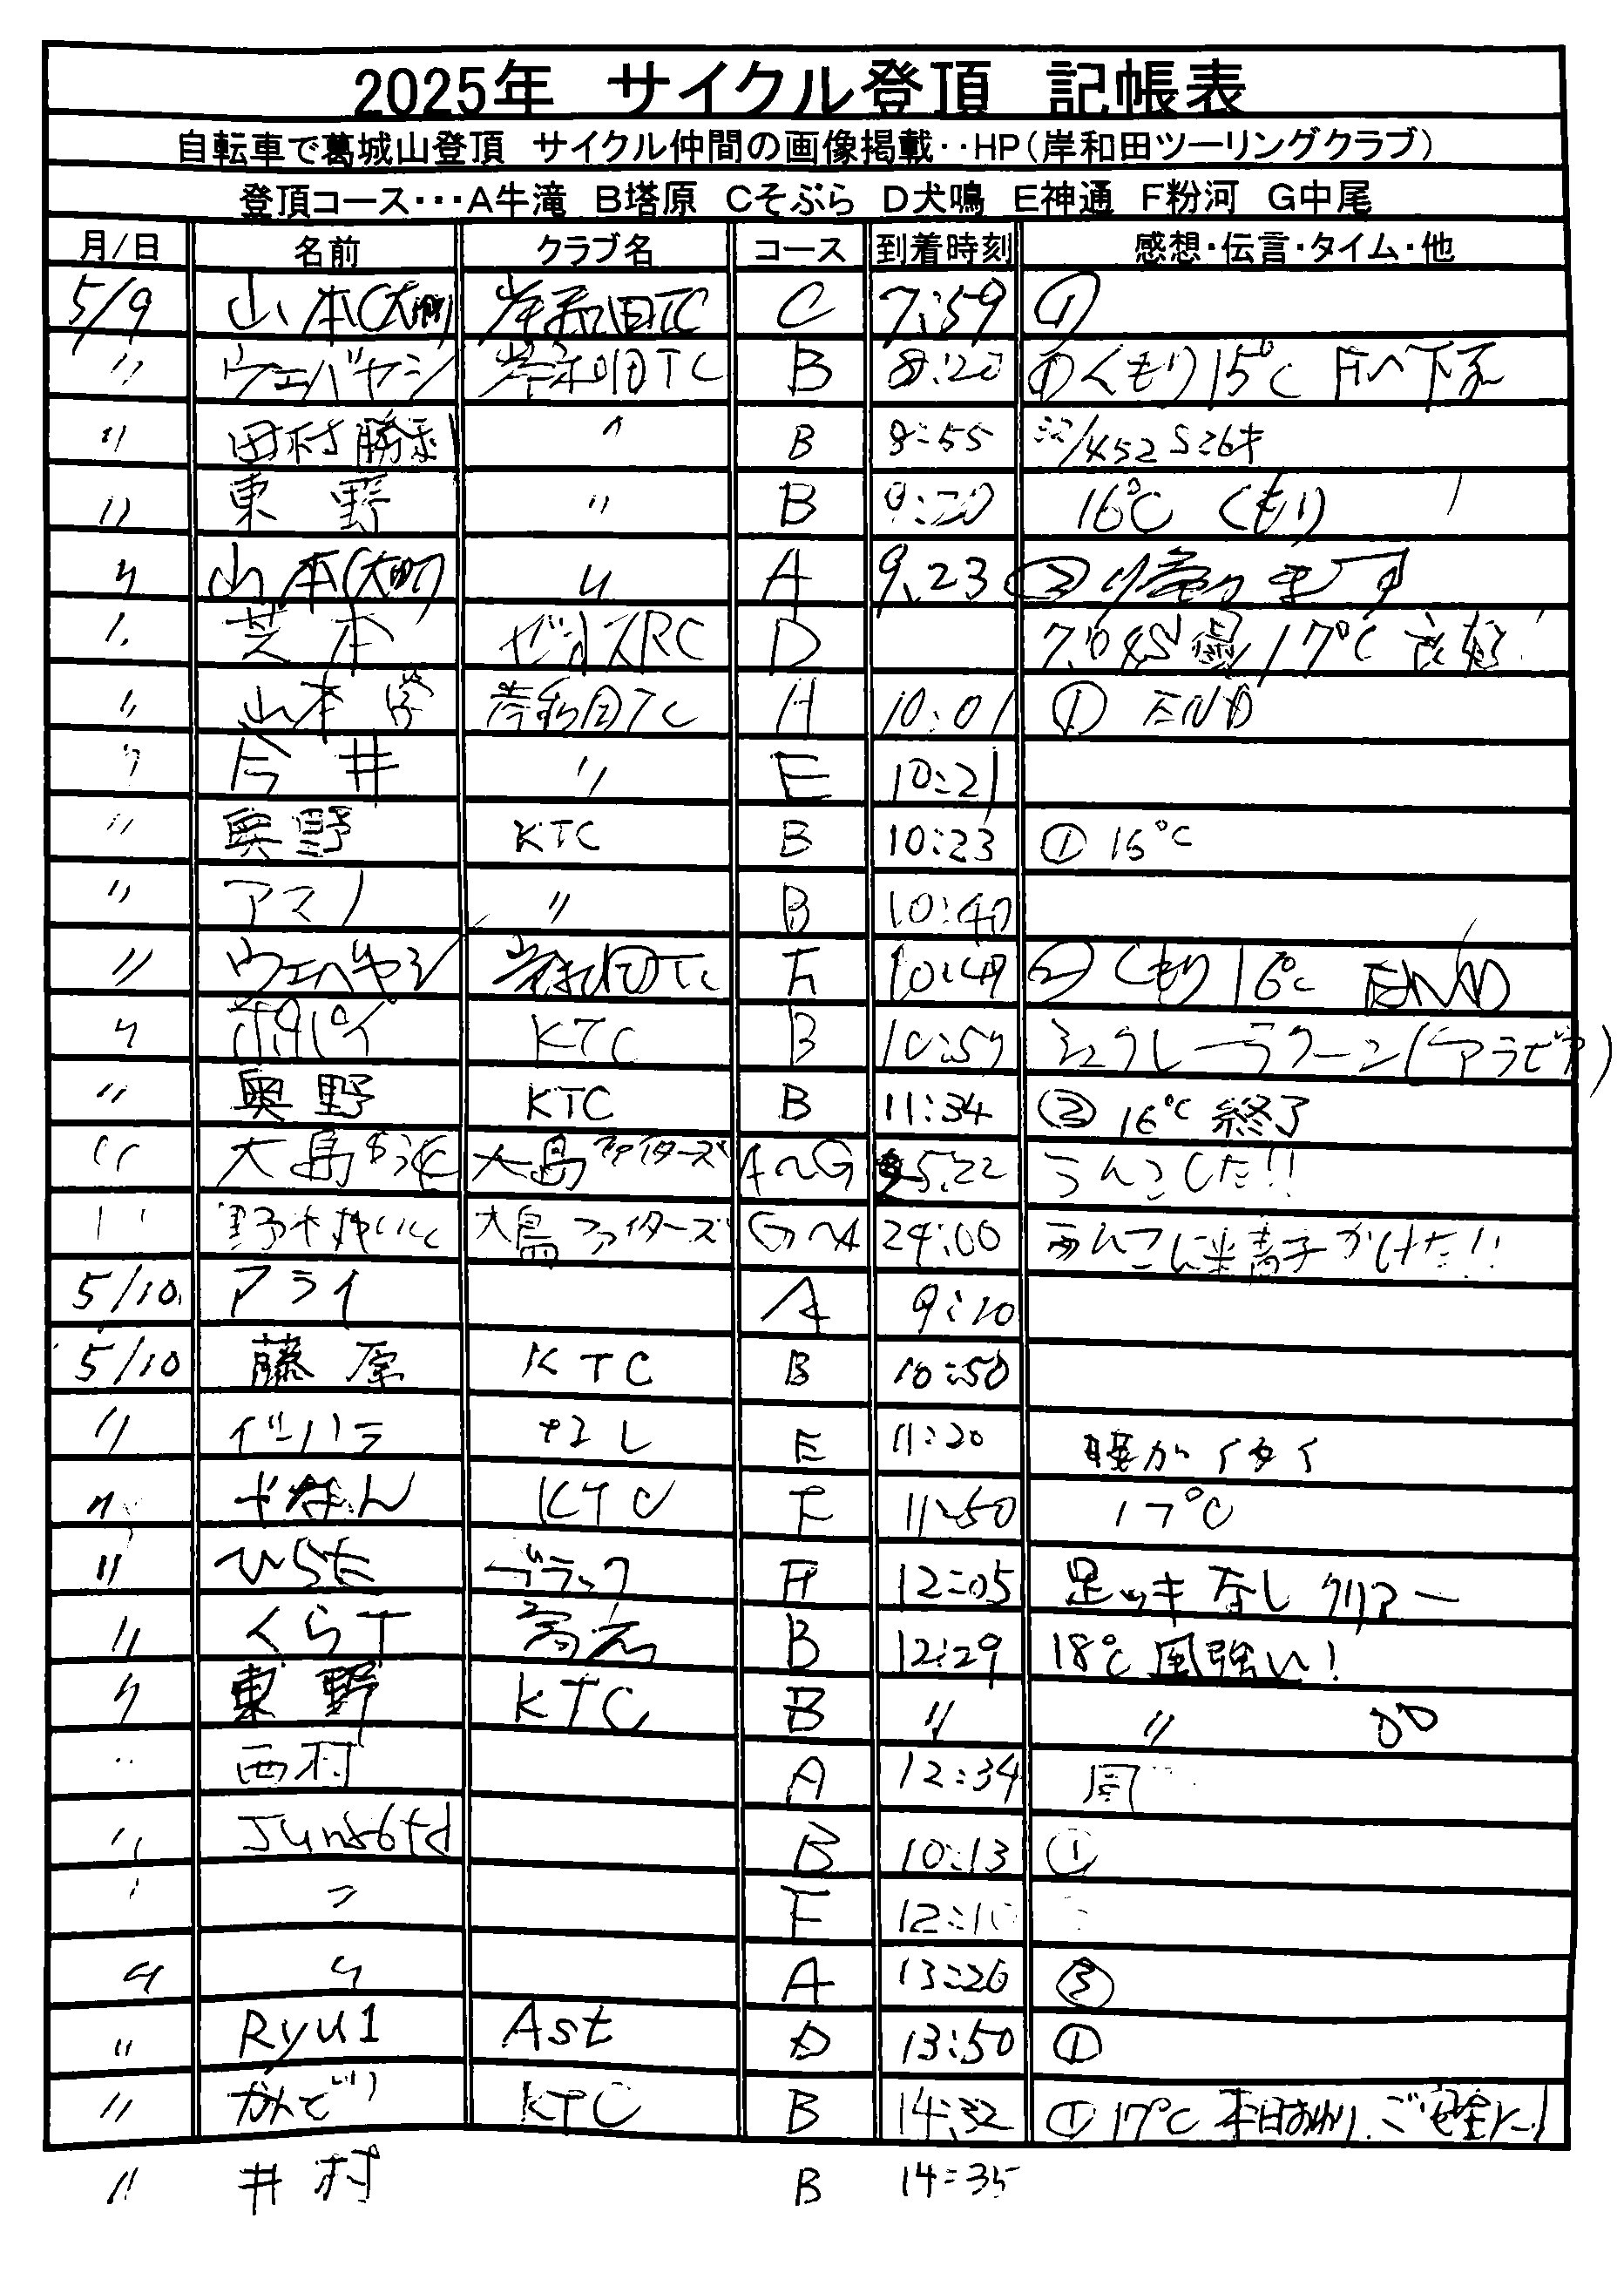 2025年 サイクル登頂 記帳表
自転車で葛城山登頂 サイクル仲間の画像掲載‥HP(岸和田ツーリングクラブ)
登頂コース･･･A牛滝 B塔原 Cそぶら D犬鳴 E神通 F粉河 G中尾
月/日 名前 クラブ名 コース 到着時刻 感想・伝言・タイム・他
5/9 山本(大町) 岸和田TC C 7:59 ①
〃 ウエバヤシ 岸和田TC B 8:20 ①くもり15℃ Fへ下る
〃 田村勝 〃 B 8:55
〃 東野 〃 B 9:20 16℃ くもり
〃 山本(大町) 〃 A 9.23 ②
〃 芝本 ゼオスRC D 17℃
〃 山本 岸和田TC A 10:01 ① END
〃 今井 〃 E 10:21
〃 奥野 KTC B 10:23 ① 15℃
〃 アマノ 〃 B 10:40
〃 ウエバヤシ 岸和田TC F 10:49 ② くもり 16℃ END
〃 ポパイ KTC B 10:57 (アラビア)
〃 奥野 KTC B 11:34 ② 16℃ 終了
〃 大島 大島ファイターズ A〜G 25:22 うんこした!!
〃 野々村 大島ファイターズ G〜A 24:00 かけた!!
5/10 アライ A 9:10
5/10 藤原 KTC B 10:50
〃 イバラ なし E 11:20 腰がイタイ
〃 やなん KTC F 11:50 17℃
〃 ひらた ブラック A 12:05 足ツキなし クリアー
〃 くらT 高石 B 12:29 18℃ 風強い!
〃 東野 KTC B 〃 〃
〃 西村 A 12:34 風
〃 B 10:13 ①
〃 〃 F 12:10
〃 〃 A 13:26 ③
〃 Ryu1 Ast D 13:50 ①
〃 かんで KTC B 14:32 ① 17℃ 本日おわり ご安全に!
〃 井村 B 14:35